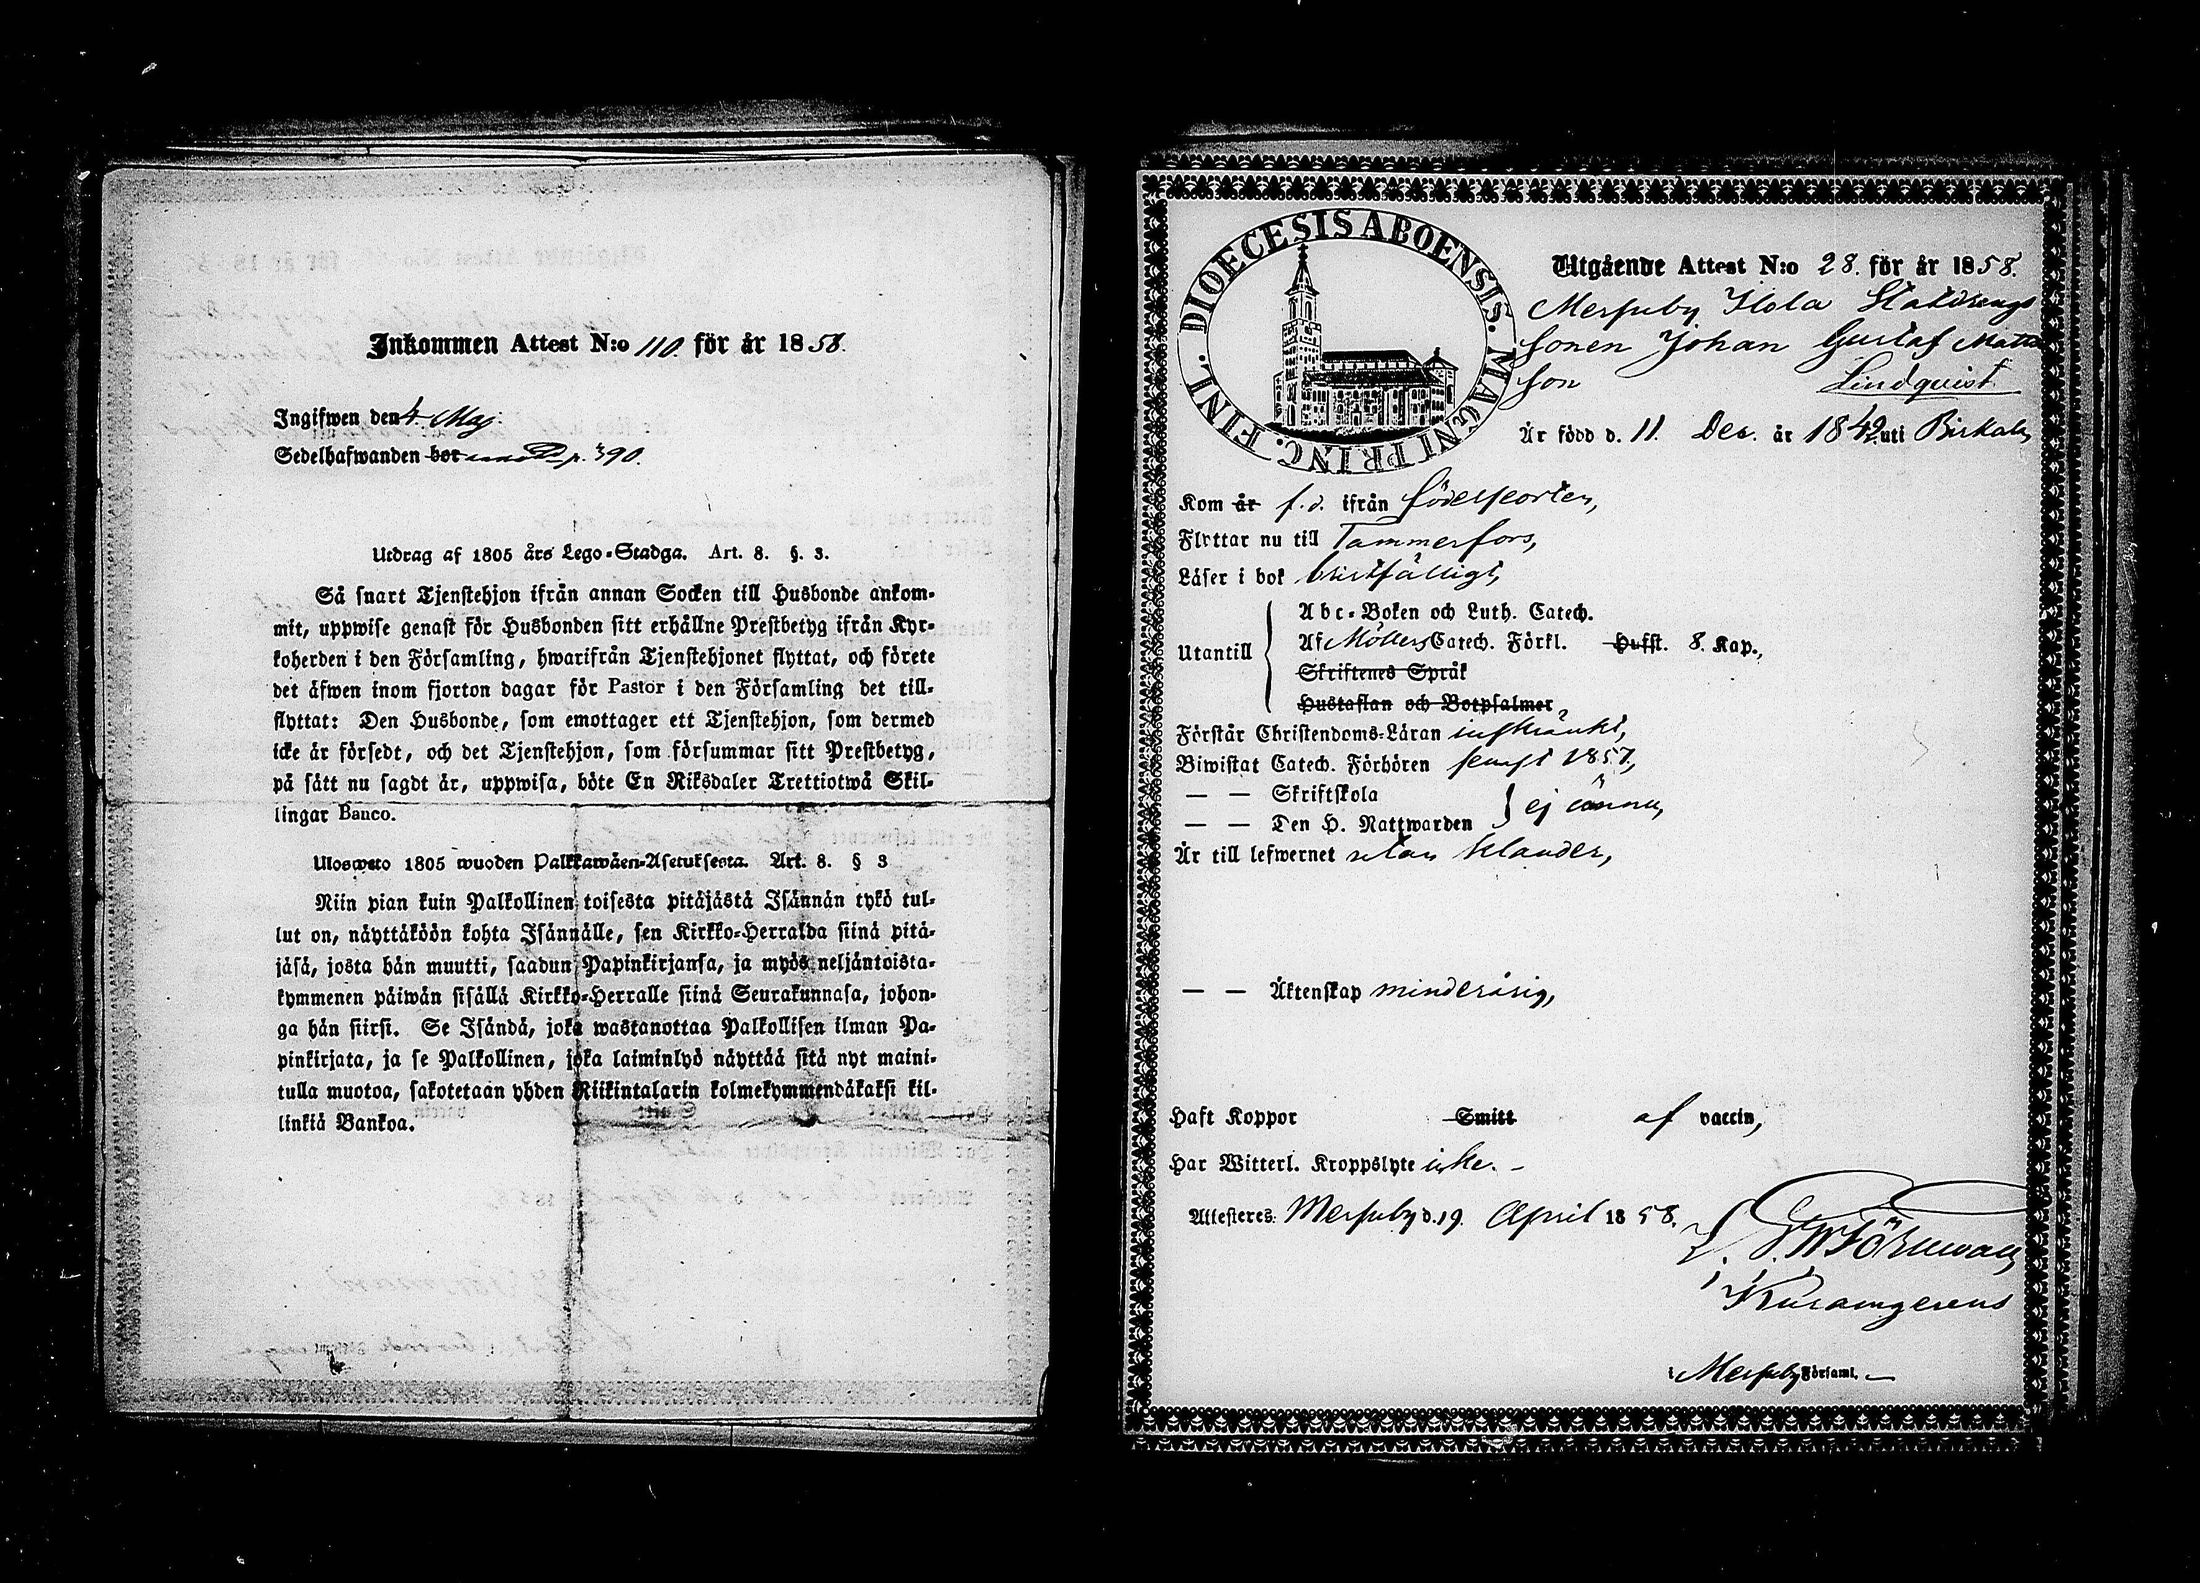 Inkommen Attest N:o 110. för år 1858.
Ingifwen den 4. Maj.
Sedelhafwanden bor p. 390.
Utdrag af 1805 års Lego-Stadga. Art. 8. §. 3.
Så snart Tjenstehjon ifrån annan Socken till Husbonde ankom-
mit, uppwise genast för Husbonden sitt erhållne Prestbetyg ifrån Kyr-
koherden i den Församling, hwarifrån Tjenstehjonet flyttat, och förete
det äfwen inom fjorton dagar för Pastor i den Församling det till-
flyttat: Den Husbonde, som emottager ett Tjenstehjon, som dermed
icke är försedt, och det Tjenstehjon, som försummar sitt Prestbetyg,
på sätt nu sagdt är, uppwisa, böte En Riksdaler Trettiotwå Skil-
lingar Banco.
Ulosweto 1805 wuoden Palkkawäen-Asetuksesta. Art. 8. § 3
Niin pian kuin Palkollinen toisesta pitäjästä Isännän tykö tul-
lut on, näyttäköön kohta Isännälle, sen Kirkko-Herralda siinä pitä-
jäsä, josta hän muutti, saadun Papinkirjansa, ja myös neljäntoista-
kymmenen päiwän sisällä Kirkko-Herralle siinä Seurakunnasa, johon-
ga hän siirsi. Se Isändä, joka wastanottaa Palkollisen ilman Pa-
pinkirjata, ja se Palkollinen, joka laiminlyö näyttää sitä nyt maini-
tulla muotoa, sakotetaan yhden Riikintalarin kolmekymmendäkaksi kil-
linkiä Bankoa.
DIOECESIS ABOENSIS. MAGNI PRINC. FINL.
Utgående Attest N:o 28. för år 1858.
Messuby Ilola Statdrengs
sonen Johan Gustaf Matts
son Lindquist
Är född d. 11. Dec. år 1842 uti Birkala
Kom år f. d. ifrån födelseorten,
Flyttar nu till Tammerfors,
Läser i bok bristfälligt,
Utantill
Abc-Boken och Luth. Catech.
Af Möllers Catech. Förkl. Hufst. 8. Kap.,
Skriftenes Språk
Hustaflan och Botpsalmer
Förstår Christendoms-Läran inskränkt,
Biwistat Catech. Förhören senast 1857,
— — Skriftskola
— — Den H. Nattwarden } ej ännu,
Är till lefwernet utan klander,
— — Äktenskap minderårig,
Haft Koppor Smitt af vaccin,
Har Witterl. Kroppslyte icke. –
Attesteres: Messuby d. 19. April 1858.
i Messuby Församl. –